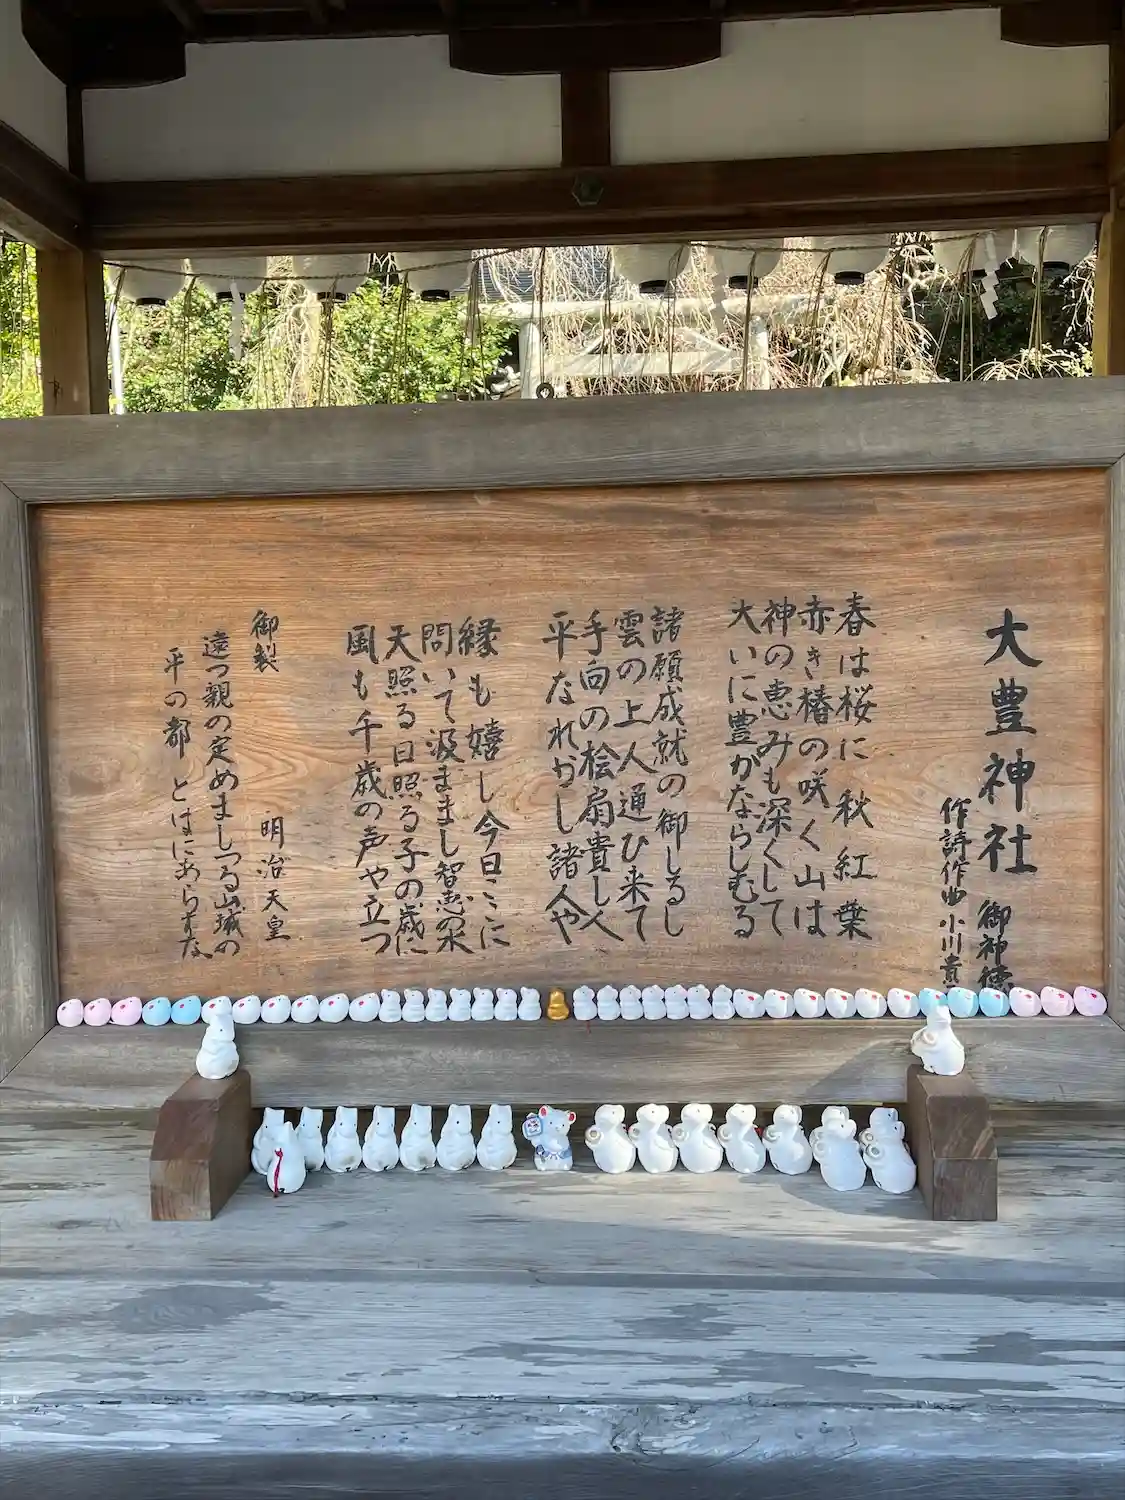 大豊神社 御神徳
作詩作曲 小川貴
春は桜に秋紅葉
赤き椿の咲く山は
神の恵みも深くして
大いに豊かならしむる
諸願成就の御しるし
雲の上人通ひ来て
手向の桧扇貴し
平なれかし諸人や
縁も嬉し今日ここに
問いて汲ままし智恵の水
天照る日照る子の歳に
風も千歳の声や立つ
御製 明治天皇
遠つ親の定めましつる山城の
平の都 とはにあらすな